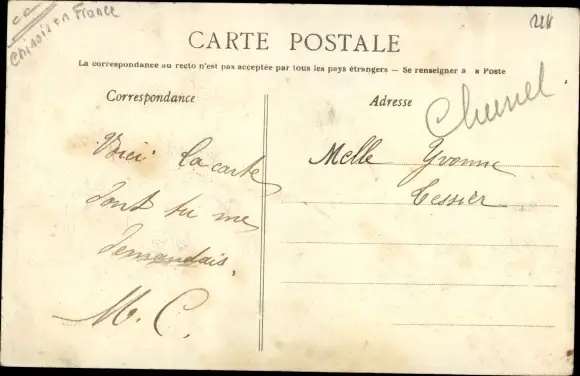 CARTE POSTALE
La correspondance au recto n'est pas acceptée par tous les pays étrangers — Se renseigner à a Poste
Correspondance
Voici la carte
dont tu me
demandais.
M. C.
Adresse
Melle Yvonne
Tessier